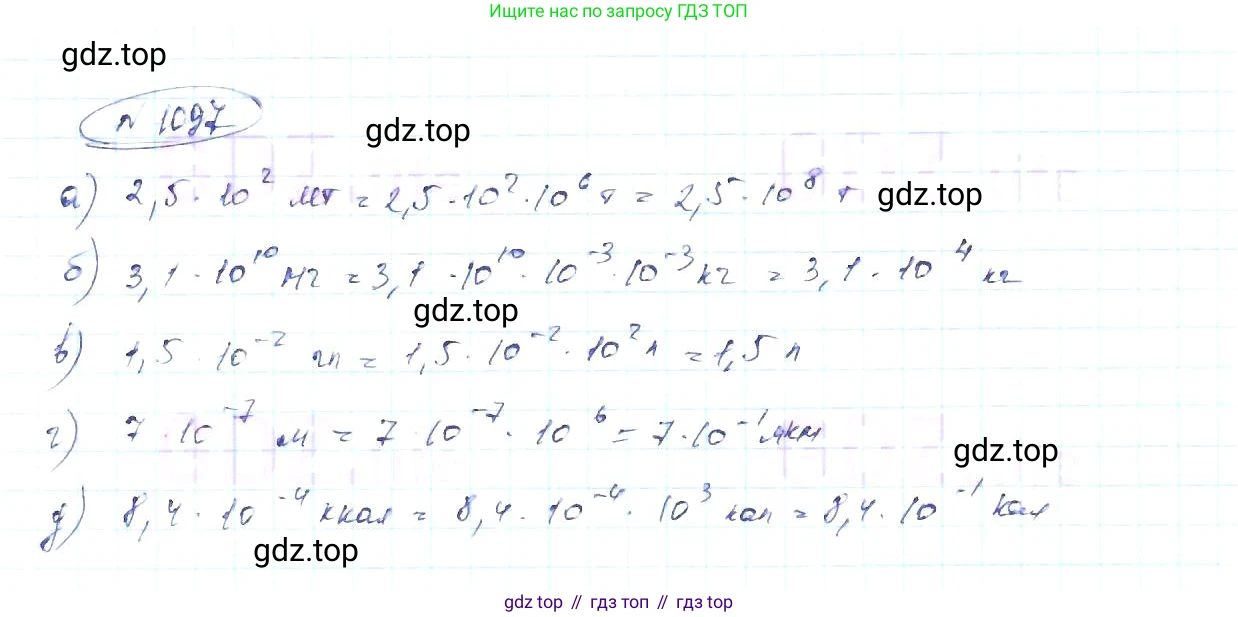 Ищите нас по запросу ГДЗ ТОП
gdz.top
№ 1097
gdz.top
а) 2,5 · 10² Мт = 2,5 · 10² · 10⁶ т = 2,5 · 10⁸ т
gdz.top
б) 3,1 · 10¹⁰ мг = 3,1 · 10¹⁰ · 10⁻³ · 10⁻³ кг = 3,1 · 10⁴ кг
gdz.top
в) 1,5 · 10⁻² гл = 1,5 · 10⁻² · 10² л = 1,5 л
г) 7 · 10⁻⁷ м = 7 · 10⁻⁷ · 10⁶ = 7 · 10⁻¹ мкм
gdz.top
д) 8,4 · 10⁻⁴ ккал = 8,4 · 10⁻⁴ · 10³ кал = 8,4 · 10⁻¹ кал
gdz.top
gdz top // гдз топ // гдз top